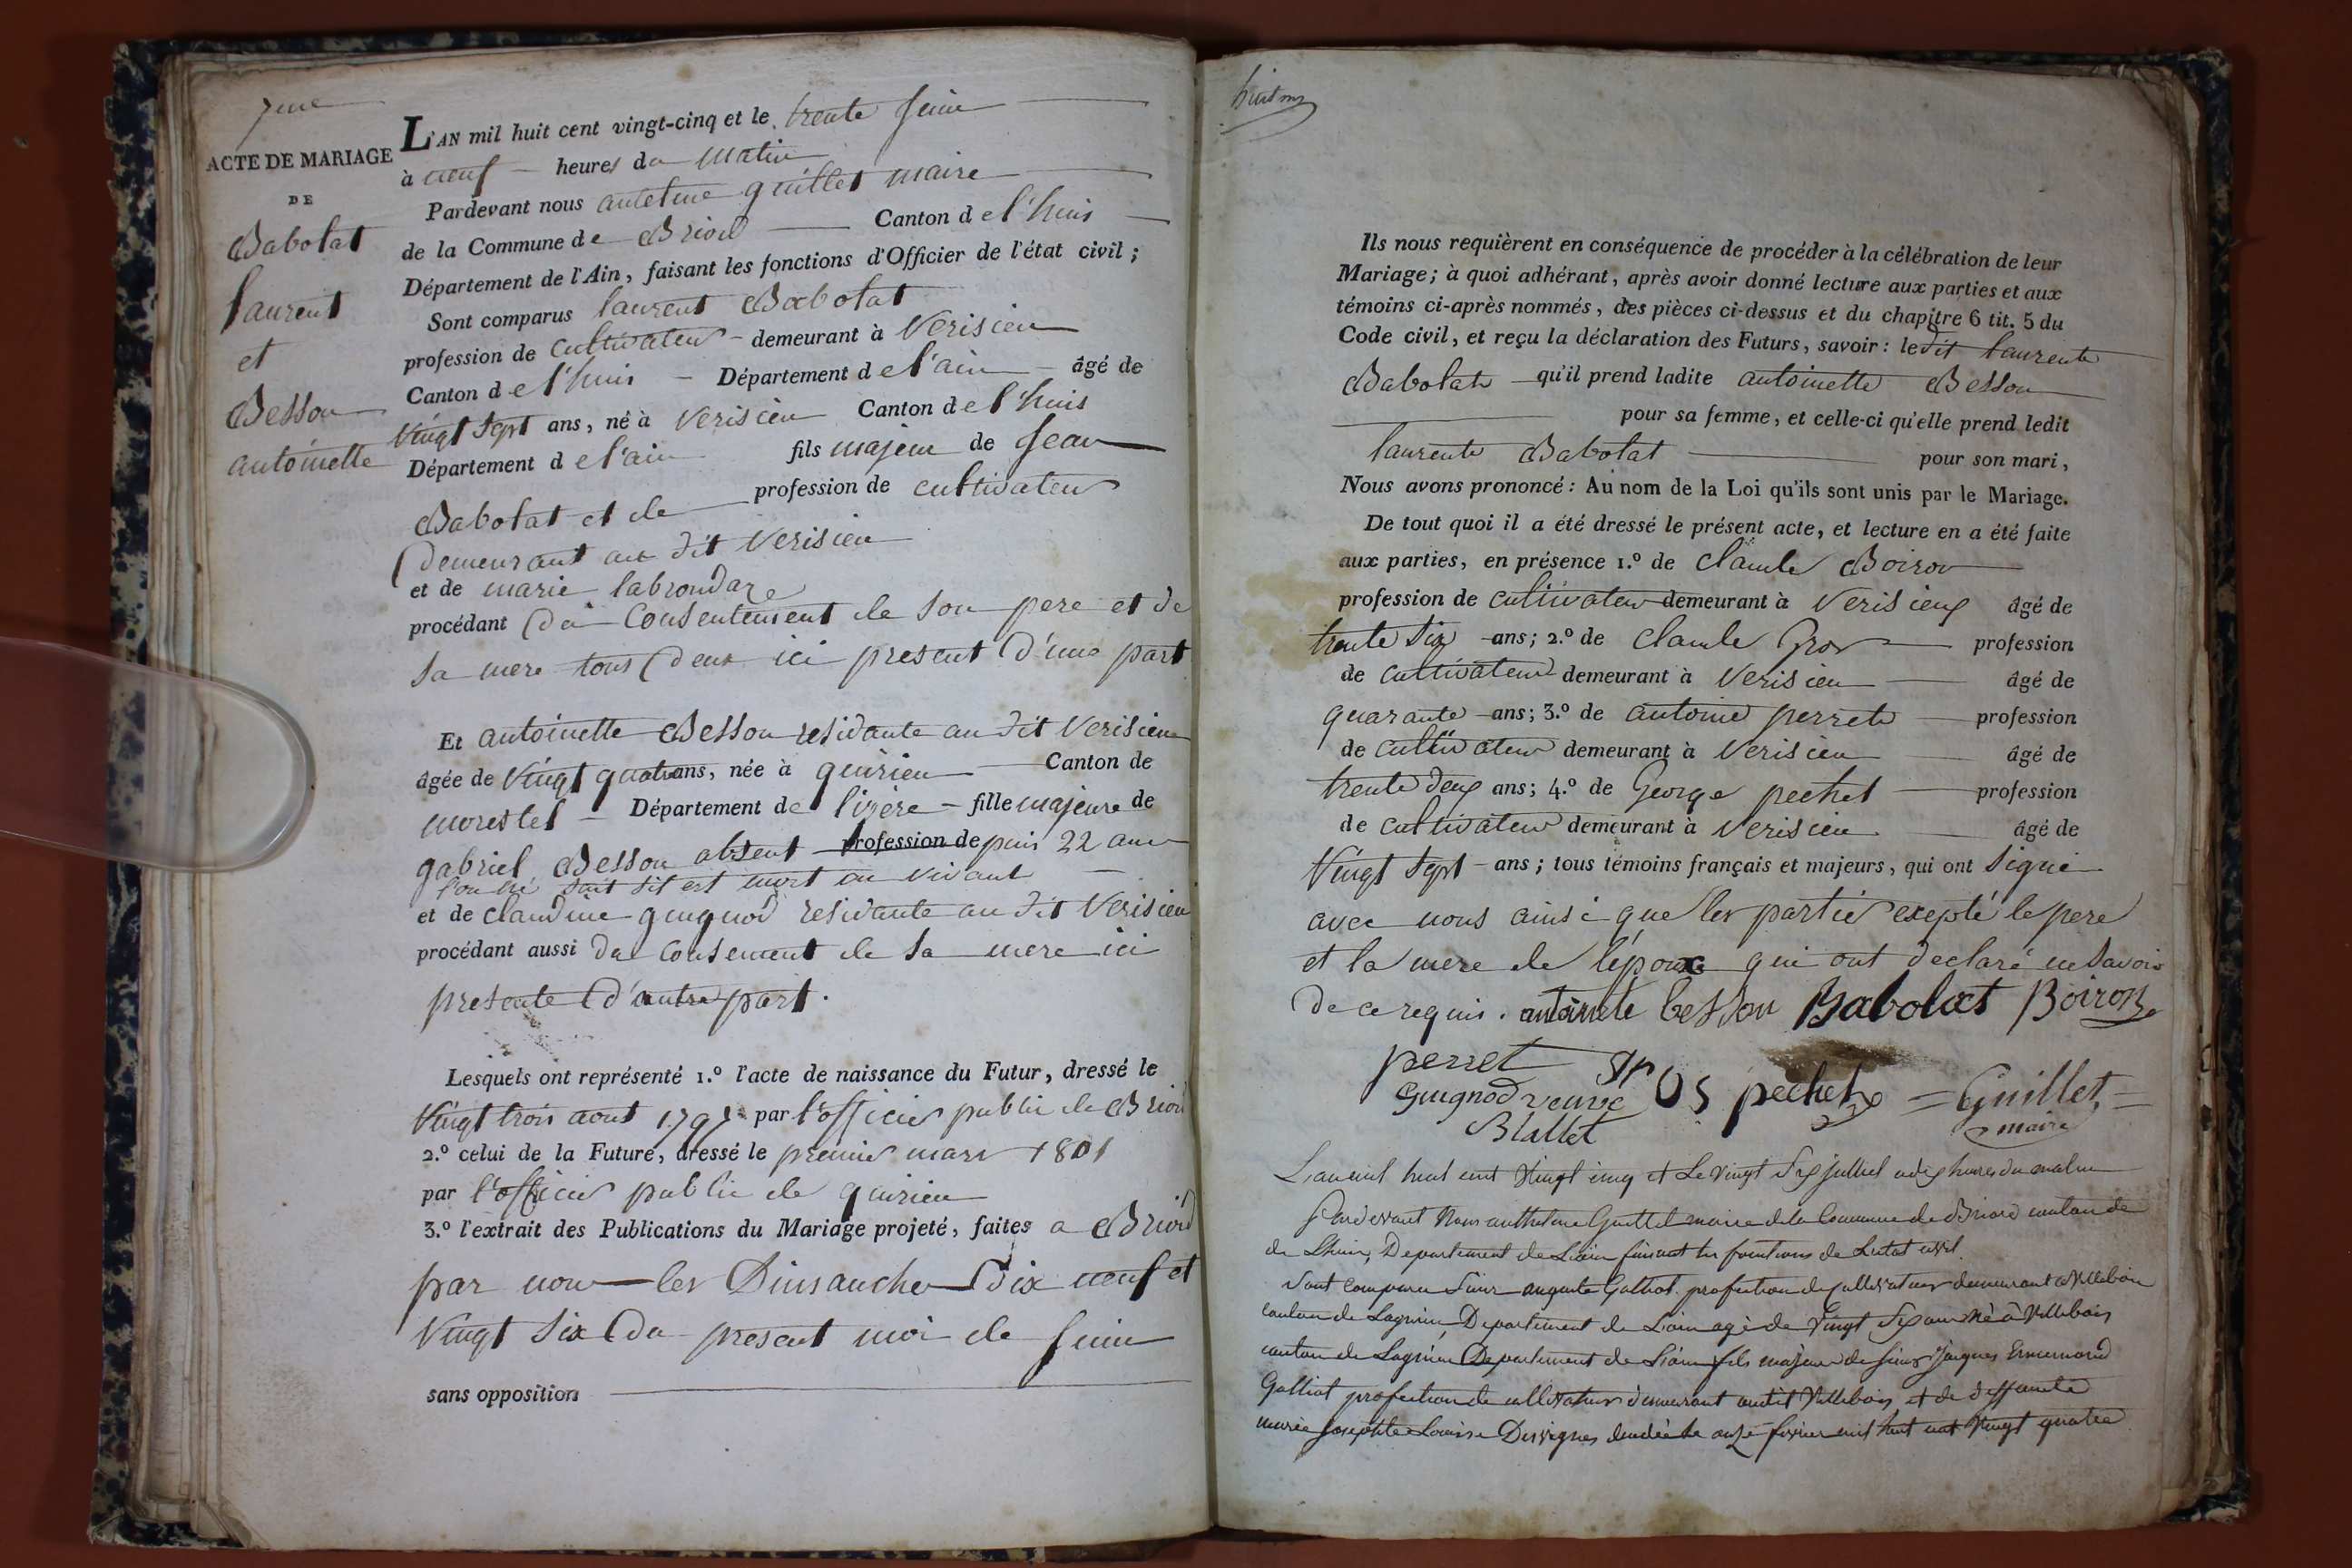 7me
ACTE DE MARIAGE
DE
Babolat
laurent
et
Besson
antoinette
L'AN mil huit cent vingt-cinq et le trente juin
à neuf heures du matin
Pardevant nous antelme guillet maire
de la Commune de Briord Canton de l'huis
Département de l'Ain, faisant les fonctions d'Officier de l'état civil;
Sont comparus laurent Babolat
profession de cultivateur demeurant à Verisieu
Canton de l'huis Département de l'ain âgé de
vingt sept ans, né à Verisieu Canton de l'huis
Département de l'ain fils majeur de Jean
Babolat et de profession de cultivateur
demeurant au dit Verisieu
et de marie labrondaze
procédant du Consentement de son pere et de
sa mere tous deux ici present d'une part
Et antoinette Besson residante au dit Verisieu
âgée de vingt quatre ans, née à quirieu Canton de
morestel Département de l'izère fille majeure de
gabriel Besson absent profession depuis 22 ans
sait sil est mort ou vivant
et de claudine guignod residante au dit Verisieu
procédant aussi du consement de sa mere ici
presente d'autre part.
Lesquels ont représenté 1.º l'acte de naissance du Futur, dressé le
vingt trois aout 1797 par l'officier public de Briord
2.º celui de la Future, dressé le premier mars 1801
par l'officier public de quirieu
3.º l'extrait des Publications du Mariage projeté, faites a Briord
par nous les Dimanches dix neuf et
vingt six du present moi de juin
sans opposition
Ils nous requièrent en conséquence de procéder à la célébration de leur
Mariage; à quoi adhérant, après avoir donné lecture aux parties et aux
témoins ci-après nommés, des pièces ci-dessus et du chapitre 6 tit. 5 du
Code civil, et reçu la déclaration des Futurs, savoir: ledit laurente
Babolat qu'il prend ladite antoinette Besson
pour sa femme, et celle-ci qu'elle prend ledit
laurente Babolat pour son mari,
Nous avons prononcé: Au nom de la Loi qu'ils sont unis par le Mariage.
De tout quoi il a été dressé le présent acte, et lecture en a été faite
aux parties, en présence 1.º de claude Boiron
profession de cultivateur demeurant à Verisieux âgé de
trente six ans; 2.º de claude Gros profession
de cultivateur demeurant à Verisieu âgé de
quarante ans; 3.º de antoine perret profession
de cultivateur demeurant à Verisieu âgé de
trente deux ans; 4.º de George pechet profession
de cultivateur demeurant à Verisieu âgé de
vingt sept ans; tous témoins français et majeurs, qui ont signé
avec nous ainsi que les partie exepté le pere
et la mere de l'époux qui ont declaré ne savoir
de ce requis. antoinete besson Babolat Boiron
perret Gros pechet Guillet
Guignod veuve maire
Blattet
L'an mil huit cent vingt cinq et le vingt six juillet a dix heures du matin
Pardevant Nous anthelme Guillet maire de la Commune de Briord canton de
de Lhuis, Departement de Lain faisant les fonctions de Letat civil.
Sont comparu Sieur auguste Galliot profession de cultivateur demeurant a Villebois
canton de Lagnieu, Departement de Lain agé de vingt six ans né à Villebois
canton de Lagnieu Departement de Lain fils majeur de sieur Jacques
Galliot profession de cultivateur demeurant audit Villebois, et de deffunte
marie Josephte Louise Desvignes decedée le onze fevrier mil huit cent vingt quatre